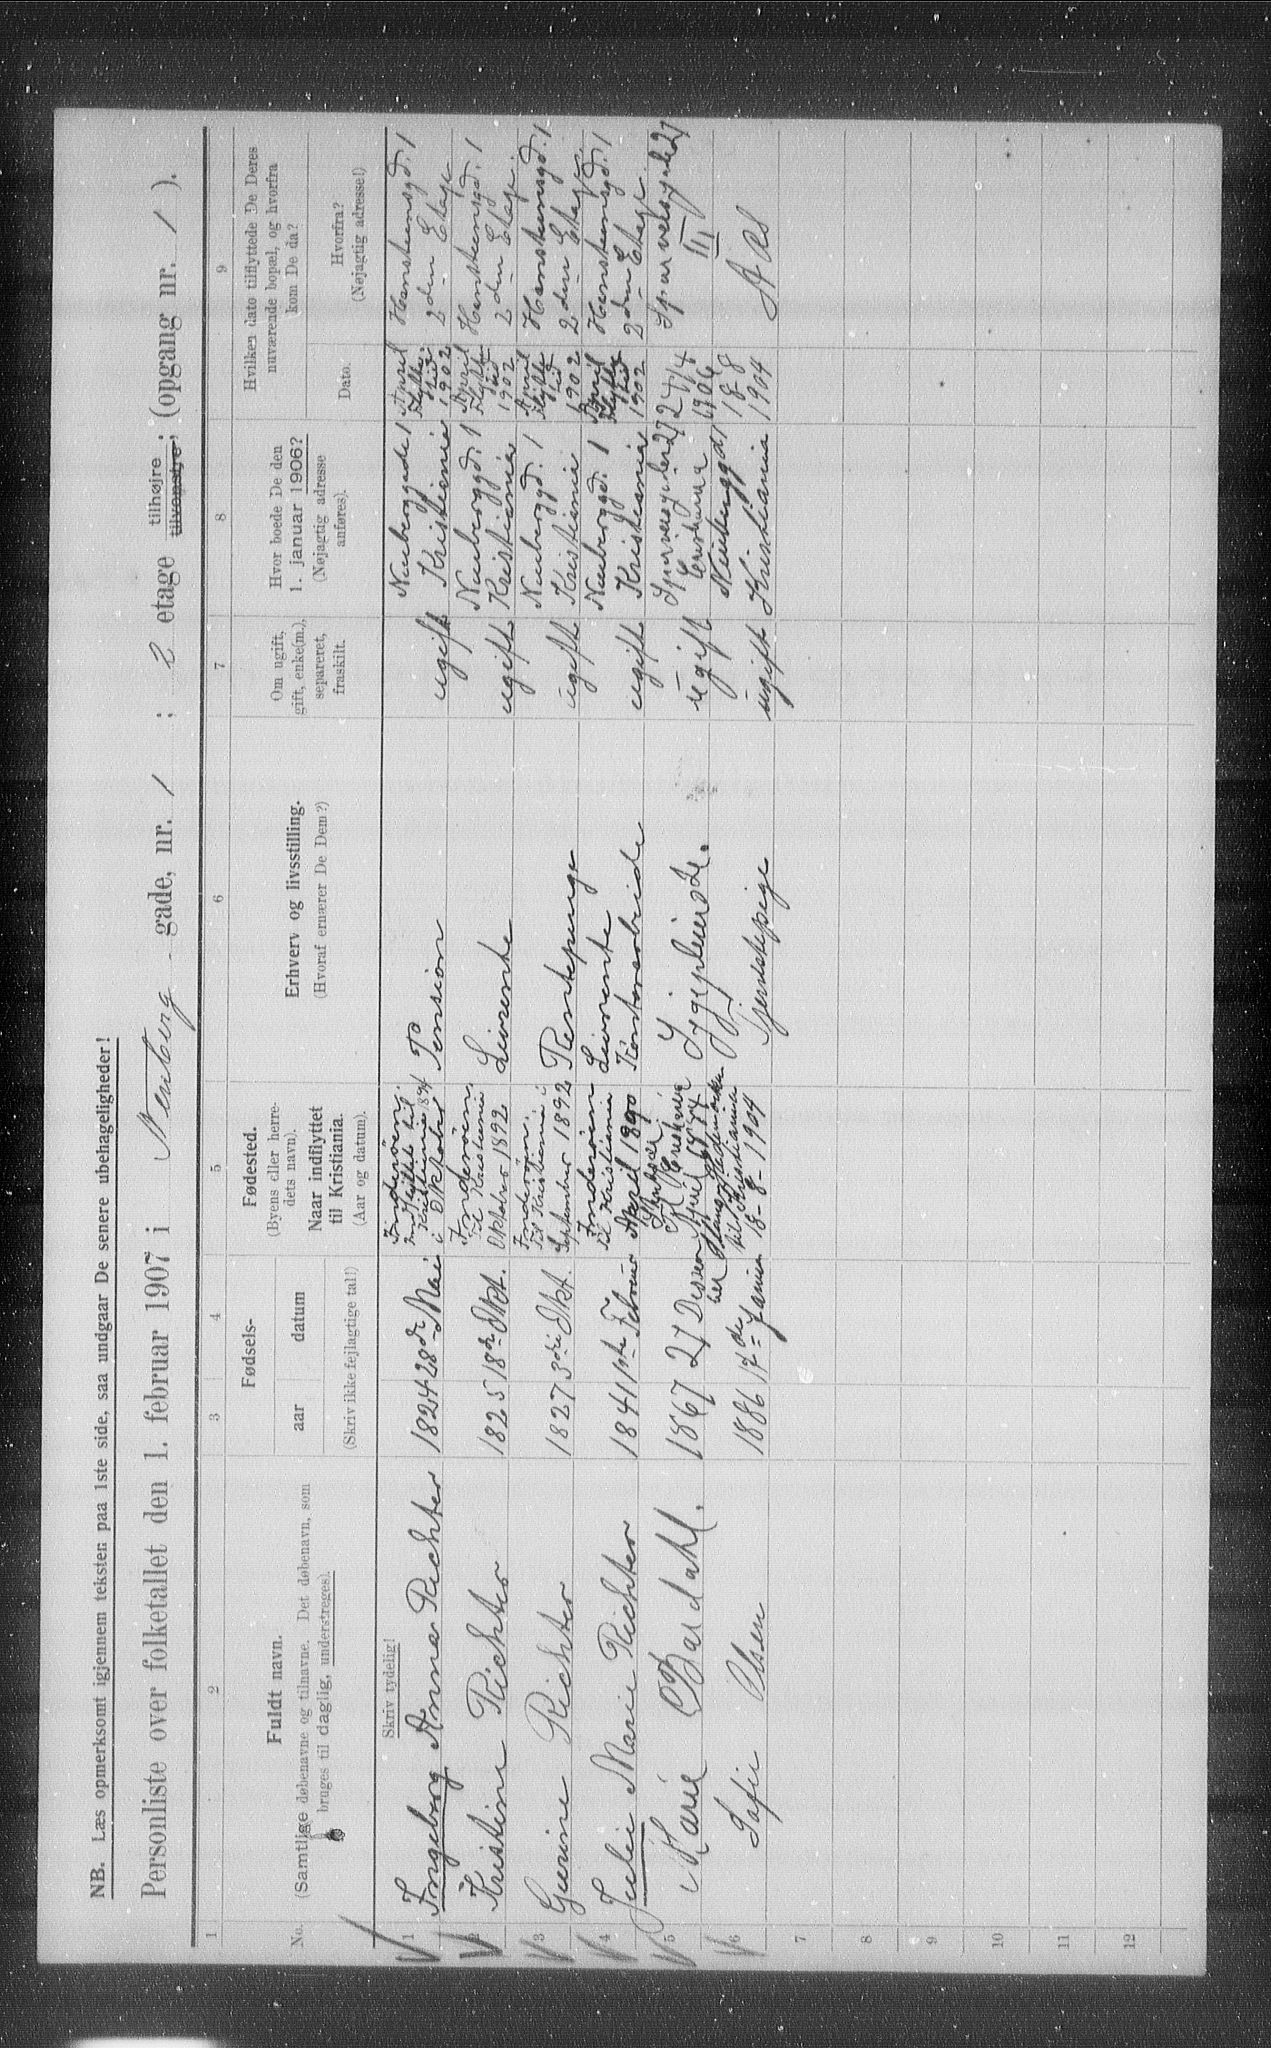 NB. Læs opmerksomt igjennem teksten paa 1ste side, saa undgaar De senere ubehageligheder!
Personliste over folketallet den 1. februar 1907 i Neuberg gade, nr. 1 ; 2 etage tilhøjre tilvenstre; (opgang nr. 1 ).
1 2 3 4 5 6 7 8 9
No.
Fuldt navn.
(Samtlige døbenavne og tilnavne. Det døbenavn, som
bruges til daglig, understreges).
Fødsels-
aar datum
(Skriv ikke fejlagtige tal!)
Fødested.
(Byens eller herre-
dets navn).
Naar indflyttet
til Kristiania.
(Aar og datum).
Erhverv og livsstilling.
(Hvoraf ernærer De Dem?)
Om ugift,
gift, enke(m.),
separeret,
fraskilt.
Hvor boede De den
1. januar 1906?
(Nøjagtig adresse
anføres).
Hvilken dato tilflyttede De Deres
nuværende bopæl, og hvorfra
kom De da?
Dato.
Hvorfra?
(Nøjagtig adresse!)
Skriv tydelig!
1 Ingeborg Anna Richter
1824 28de Mai
Inderøen
Indflyttet til
Kristiania
i Oktober 1894
Pension
ugift
Neuberggade 1
Kristiania
April
Flytte
tid
1902
Hansteensgd. 1
2den Etage
2 Kristine Richter
1825 18de Okt.
Inderøen
Til Kristiania
Oktober 1892
Livrente
ugift
Neuberggd. 1
Kristiania
April
Flytte
tid
1902
Hansteensgd. 1
2den Etage.
3 Gurine Richter
1827 3die Okt.
Inderøen.
Til Kristiania i
September 1892
Rentepenge
ugift
Neuberggd. 1
Kristiania
April
Flytte
tid
1902
Hansteensgd. 1
2den Etage.
4 Julie Marie Richter
1841 1ste Februar
Inderøen
Til Kristiania
April 1890
Livrente
Kontorarbeide
ugift
Neuberggd. 1
Kristiania
April
Flytte
tid
1902
Hansteensgd. 1
2den Etage.
5 Marie Bardahl.
1867 27 Desember
Sygepleierske.
ugift
24/4
1906
III
6 Sofie Olsen
1886 17de Januar
til Kristiania
18-8-1904
Tjenestepige
ugift
Neuberggd 1
Kristiania
18-8
1904
Aas
7
8
9
10
11
12